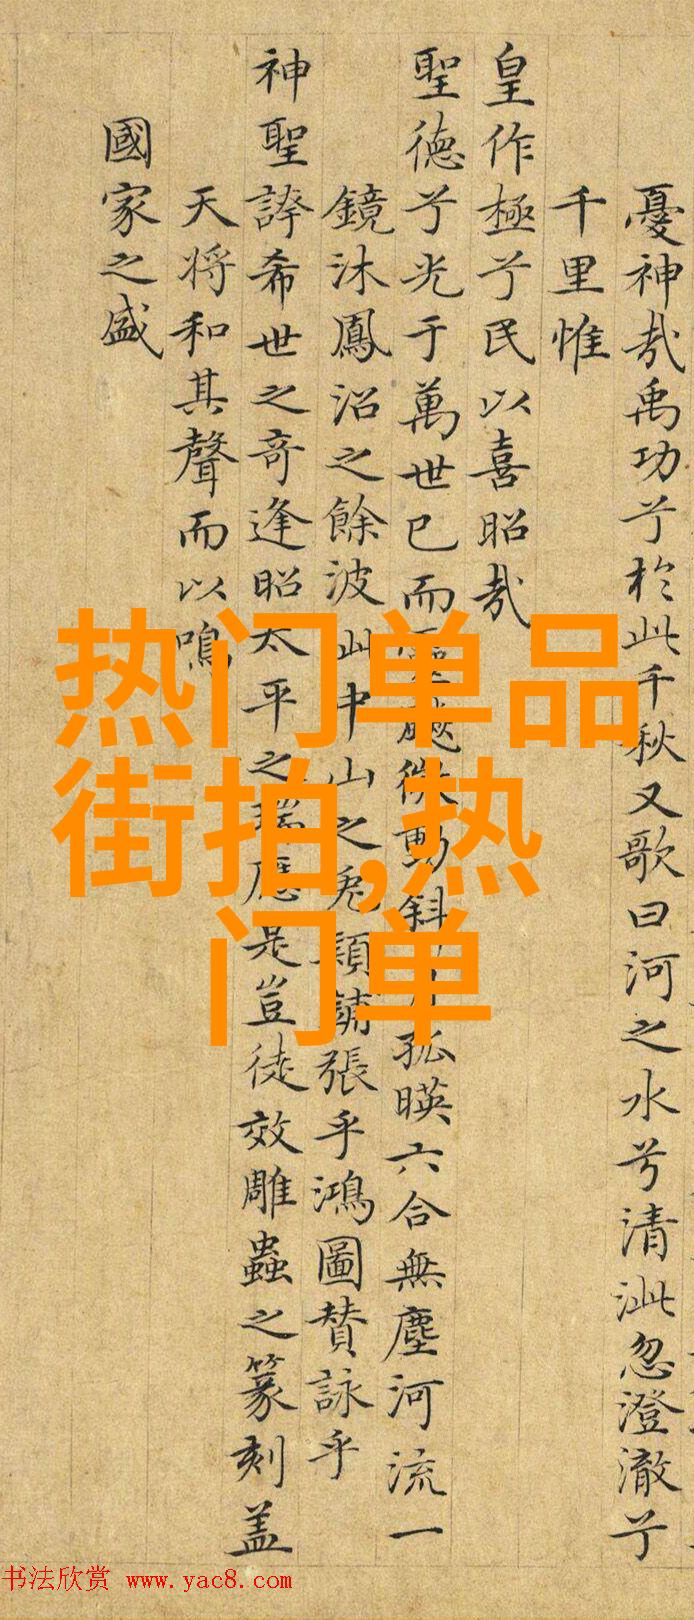 憂神哉禹功兮於此千秋又歌曰河之水兮清泚忽澄澈兮
千里惟
皇作極兮民以喜昭哉
聖德兮光于萬世已而動斜孤暎六合無塵河流一
鏡沐鳳沼之餘波中山之兔穎張乎鴻圖贊詠乎
神聖誇希世之奇逢昭太平之瑞應是豈徒效雕蟲之篆刻盖
天将和其聲而以鳴
國家之盛
热门单品
街拍,热
门单
书法欣赏 www.yac8.com